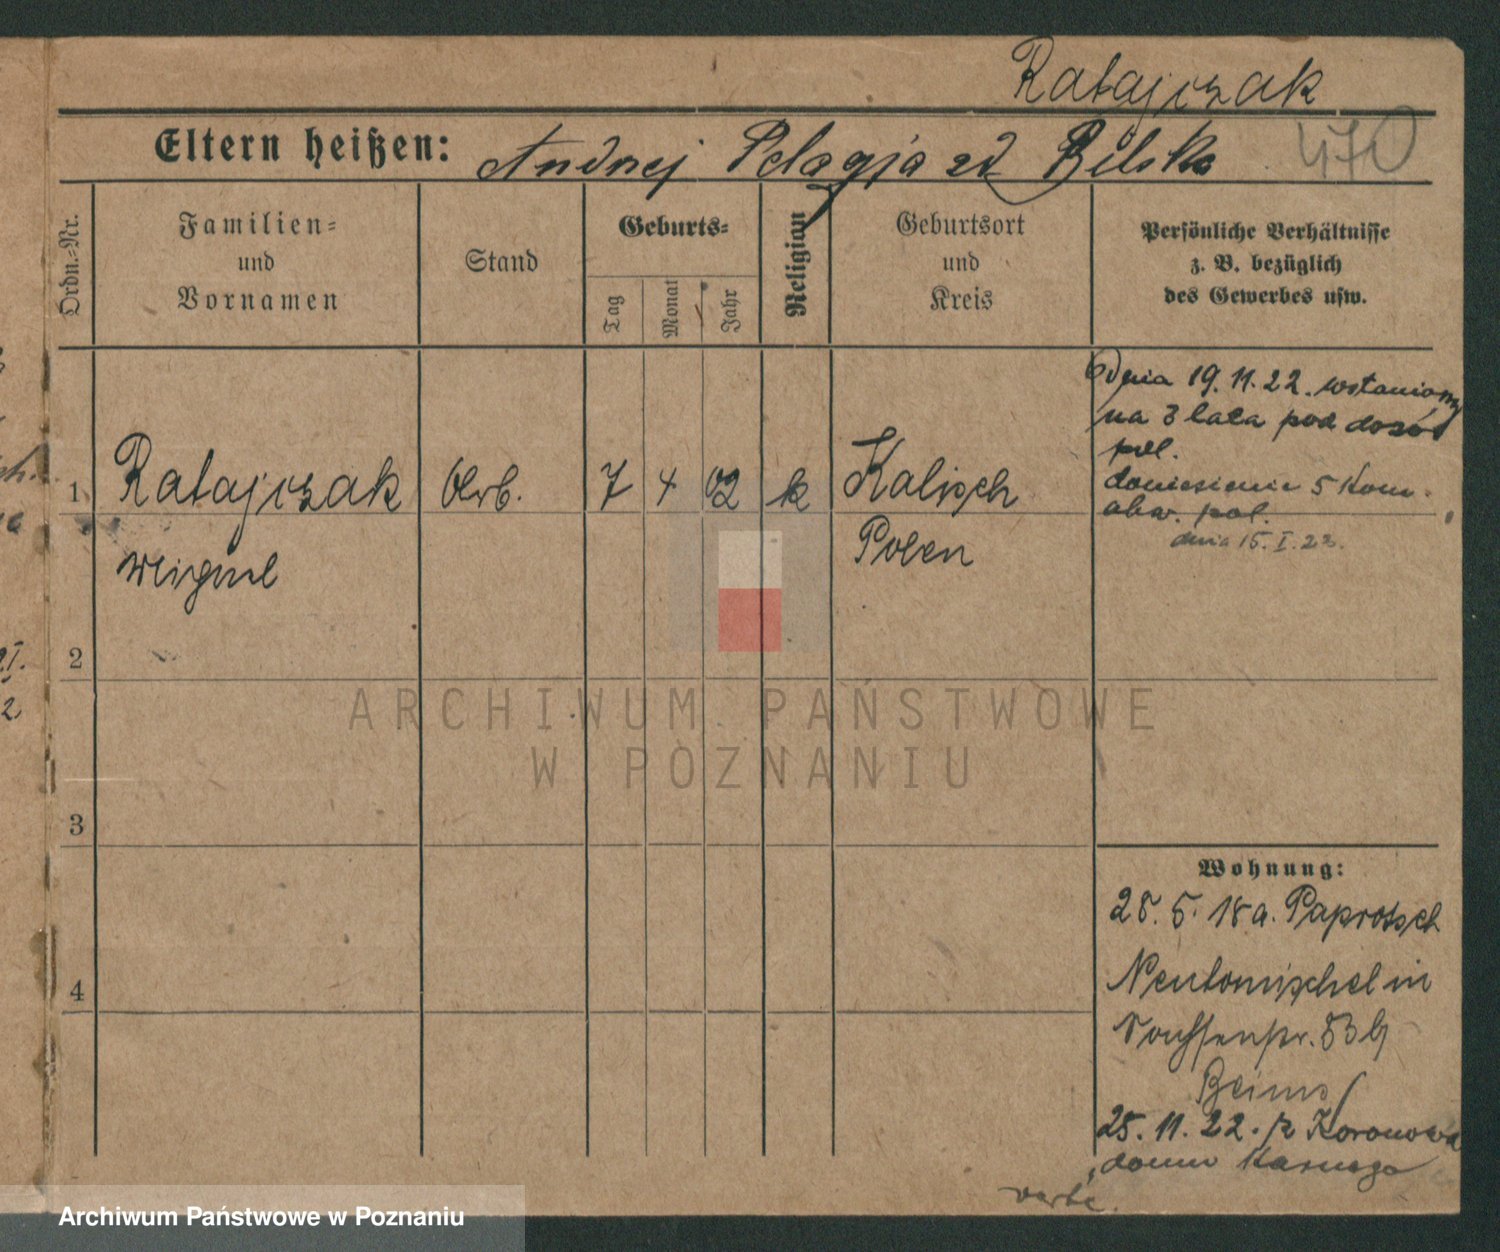 Ratajczak
470
Eltern heißen: Andrzej Pelagja zd Bilska
Ordn.-Nr.
Familien-
und
Vornamen
Stand
Geburts-
Tag
Monat
Jahr
Religian
Geburtsort
und
Kreis
Persönliche Verhältnisse
z. B. bezüglich
des Gewerbes usw.
Dnia 19.11.22. wstawiony
na 3 lata pod dozór
pol.
doniesienie 5 Kom.
obw. pol.
dnia 15.I.22.
1 Ratajczak Arb. 7 4 02 k Kalisch
Polen
2
3
4
Wohnung:
28. 5. 18 a. Paprotsch
Neutomischel in
53 b
25. 11. 22. z Koronowa
domu Karnego
ARCHIWUM PAŃSTWOWE
W POZNANIU
Archiwum Państwowe w Poznaniu